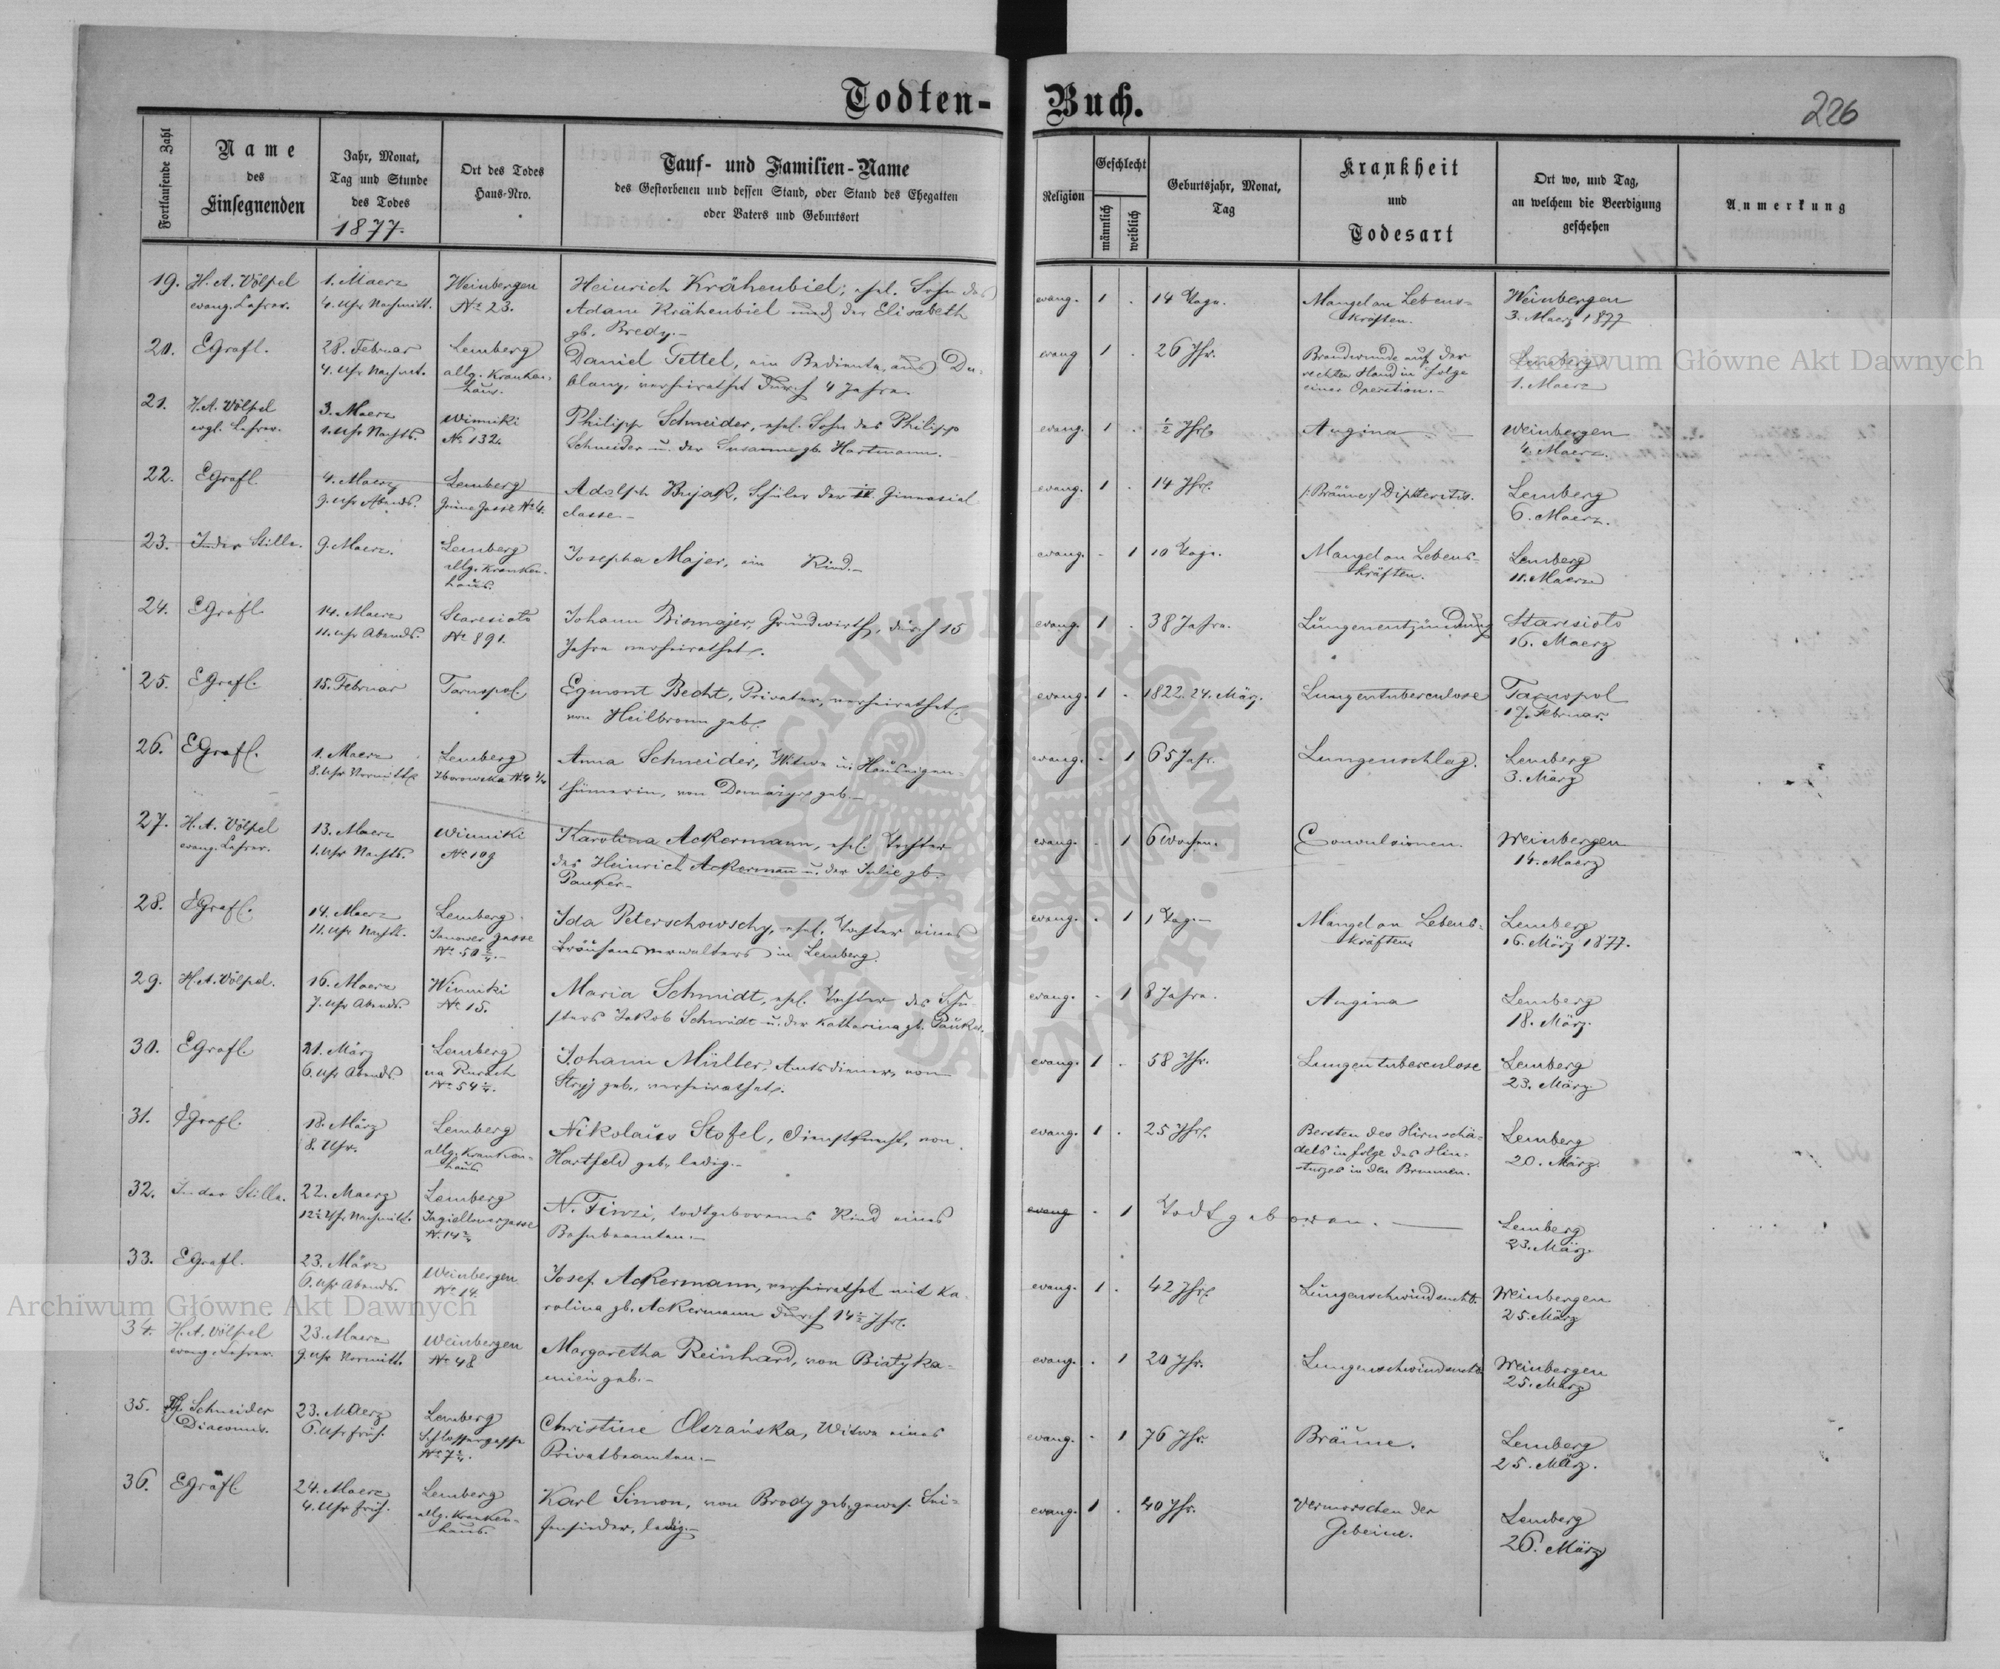 Todten-Buch.
226
Fortlaufende Zahl
Name
des
Einsegnenden
Jahr, Monat,
Tag und Stunde
des Todes
1877.
Ort des Todes
Haus-Nro.
Tauf- und Familien-Name
des Gestorbenen und dessen Stand, oder Stand des Ehegatten
oder Vaters und Geburtsort
Religion
Geschlecht
männlich
weiblich
Geburtsjahr, Monat,
Tag
Krankheit
und
Todesart
Ort wo, und Tag,
an welchem die Beerdigung
geschehen
Anmerkung
19. H. A. Völpel 1. Maerz Weinbergen Heinrich Krähenbiel, ehel. Sohn des evang. 1 . 14 Tage. Mangel an Lebens- Weinbergen
evang. Lehrer. 4. Uhr Nachmitt. No 23. Adam Krähenbiel und der Elisabeth kräften. 3. Maerz 1877
gb. Bredy.-
20. EGrafl. 28. Februar Lemberg Daniel Tettel, ein Bedienter, aus Du- evang 1 . 26 Jhr. Brandwunde auf der Lemberg
4. Uhr Nachmt. allg. Kranken- blany, verheirathet durch 4 Jahre. rechten Hand in folge 1. Maerz
haus. einer Operation.-
21. H. A. Völpel 3. Maerz Winniki Philipp Schneider, ehel. Sohn des Philipp evang. 1 . ½ Jhr. Angina Weinbergen
evgl. Lehrer. 1. Uhr Nachts. No. 132. Schneider u. der Susanne gb. Hartmann.- 4. Maerz.
22. EGrafl 4. Maerz Lemberg Adolph Bujak, Schüler der IV. Gimnasial evang. 1 . 14 Jhr. /: Bräune :/ Diphteritis. Lemberg
9. Uhr Abends. Grüne Gasse No 4. classe.- 6. Maerz.
23. In der Stille. 9. Maerz. Lemberg Josepha Majer, ein Kind.- evang. - 1 10 Tage. Mangel an Lebens- Lemberg
allg. Kranken- kräften. 11. Maerz
haus.
24. EGrafl 14. Maerz Staresioto Johann Bismajer, Grundwirth, durch 15 evang. 1 . 38 Jahre. Lungenentzündung Staresioto
11. Uhr Abends. No 891. Jahre verheirathet. 16. Maerz
25. EGrafl. 15. Februar Tarnopol Egmont Becht, Privater, verheirathet, evang. 1 . 1822. 24. März. Lungentuberculose Tarnopol
von Heilbronn geb. 17. Februar.
26. EGrafl. 1. Maerz Lemberg Anna Schneider, Witwe u. Hauseigen- evang. - 1 65 Jahr. Lungenschlag. Lemberg
8. Uhr Vormittg thümerin, von geb.- 3. März
27. H. A. Völpel 13. Maerz Winniki Karolina Ackermann, ehel. Tochter evang. - 1 6 Wochen. Convulsionen. Weinbergen
evang. Lehrer. 1. Uhr Nachts. No 109 des Heinrich Ackermann u. der Julie gb. 14. Maerz
Pauker-
28. EGrafl. 14. Maerz Lemberg Ida Peterschowschy, ehel. Tochter eines evang. - 1 1 Tag.- Mangel an Lebens- Lemberg
11. Uhr Nachts. Janower gasse Bräuhausverwalters in Lemberg. kräften. 16. März 1877.
29. H. A. Völpel. 16. Maerz Winniki Maria Schmidt, ehel. Tochter des Schu- evang. - 1 8 Jahre. Angina Lemberg
7. Uhr Abends. No 15. sters Jakob Schmidt u. der Katharina gb. Pauker. 18. März.
30. EGrafl. 21. März Lemberg Johann Müller, Amtsdiener, von evang. 1 . 58 Jhr. Lungentuberculose Lemberg
6. Uhr Abends. na Rurach Stryj geb., verheirathet. 23. März
31. EGrafl. 18. März Lemberg Nikolaus Stofel, Dienstknecht, von evang. 1 . 25 Jhr. Bersten des Hirnschä- Lemberg
8. Uhr. allg. Kranken- Hartfeld geb., ledig.- dels in folge des Hin- 20. März.
haus. sturzes in den Brunnen.
32. In der Stille. 22. Maerz Lemberg N. Finzi, todtgeborenes Kind eines evang - 1 Todtgeboren. Lemberg
12½ Uhr Nachmitt. Jagiellonergasse Bahnbeamten.- 23. März.
33. EGrafl. 23. März Weinbergen Josef Ackermann, verheirathet mit Ka- evang. 1 . 42 Jhr. Lungenschwindsucht. Weinbergen
6. Uhr Abends. No 14. rolina gb. Ackermann durch 14½ Jhr. 25. März
34. H. A. Völpel 23. Maerz Weinbergen Margaretha Reinhard, von Biatyka- evang. . 1 20 Jhr. Lungenschwindsucht Weinbergen
evang. Lehrer. 9. Uhr Vormitt. No 48 mien geb.- 25. März
35. Schneider 23. Maerz Lemberg Christine Olszańska, Witwe eines evang. - 1 76 Jhr. Bräune. Lemberg
Diaconus. 6. Uhr früh. Schlossergasse Privatbeamten.- 25. März.
36. EGrafl 24. Maerz Lemberg Karl Simon, von Brody geb., gewes. Sei- evang. 1 . 40 Jhr. Vermorschen der Lemberg
4. Uhr früh. allg. Kranken- fensieder, ledig.- Gebeine. 26. März
haus.
Archiwum Główne Akt Dawnych
Archiwum Główne Akt Dawnych
ARCHIWUM GŁÓWNE AKT DAWNYCH